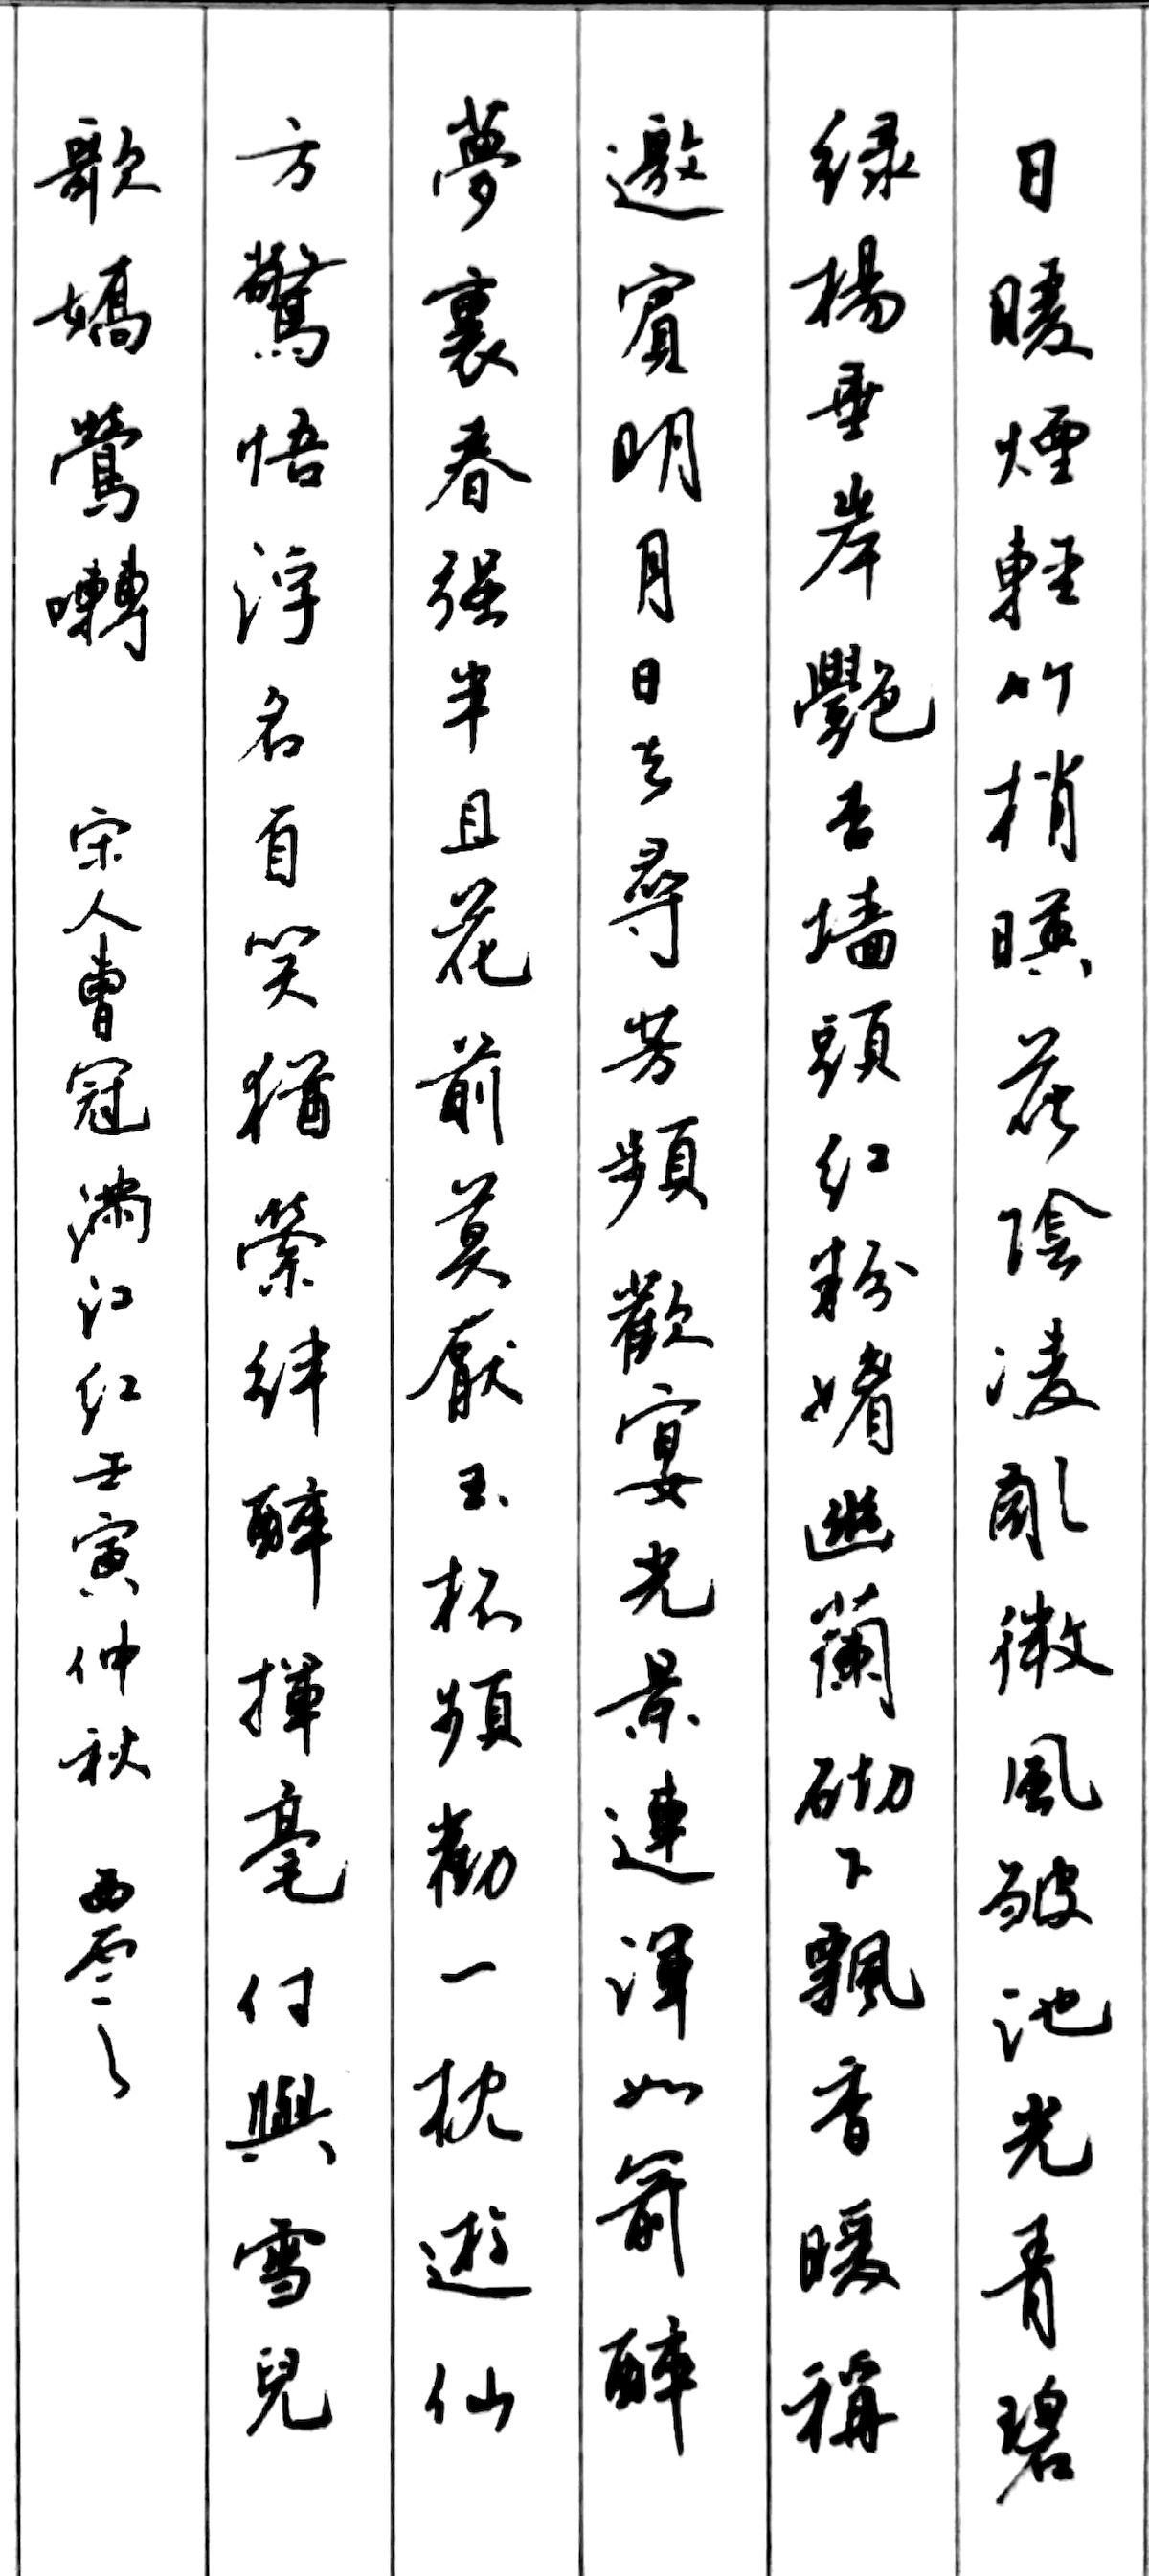 日暖煙輕竹梢暎花陰凌亂微風皺池光青碧
緑楊垂岸艷杏墻頭红粉媚幽蘭砌下飄香暖稱
邀賓明月日去尋芳頻歡宴光景連渾如箭醉
夢裏春强半且花前莫厭玉杯頻勸一枕遊仙
方驚悟浮名自笑猶縈絆醉揮毫付與雪兒
歌嬌鶯囀 宋人曹冠满江红壬寅仲秋 西雲